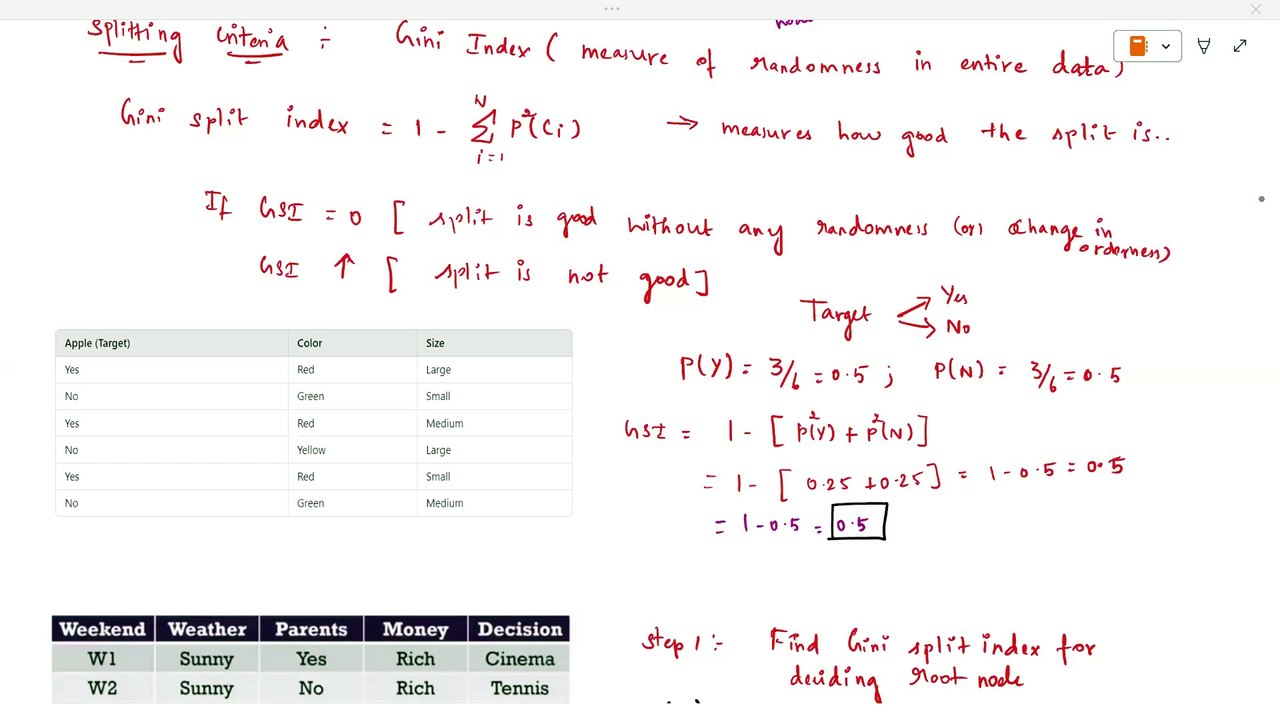 Splitting Criteria :- Gini Index ( measure of randomness in entire data)
Gini split index = 1 - N∑i=1 P²(Ci) → measures how good the split is..
If GSI = 0 [ split is good without any randomness (or) change in orderness)
GSI ↑ [ split is not good ]
Target Yes
No
P(Y) = 3/6 = 0.5 ; P(N) = 3/6 = 0.5
GSI = 1 - [ P²(Y) + P²(N) ]
= 1 - [ 0.25 + 0.25 ] = 1 - 0.5 = 0.5
= 1 - 0.5 = 0.5
Apple (Target) Color Size
Yes Red Large
No Green Small
Yes Red Medium
No Yellow Large
Yes Red Small
No Green Medium
Weekend Weather Parents Money Decision
W1 Sunny Yes Rich Cinema
W2 Sunny No Rich Tennis
Step 1 :- Find Gini split index for
deciding root node